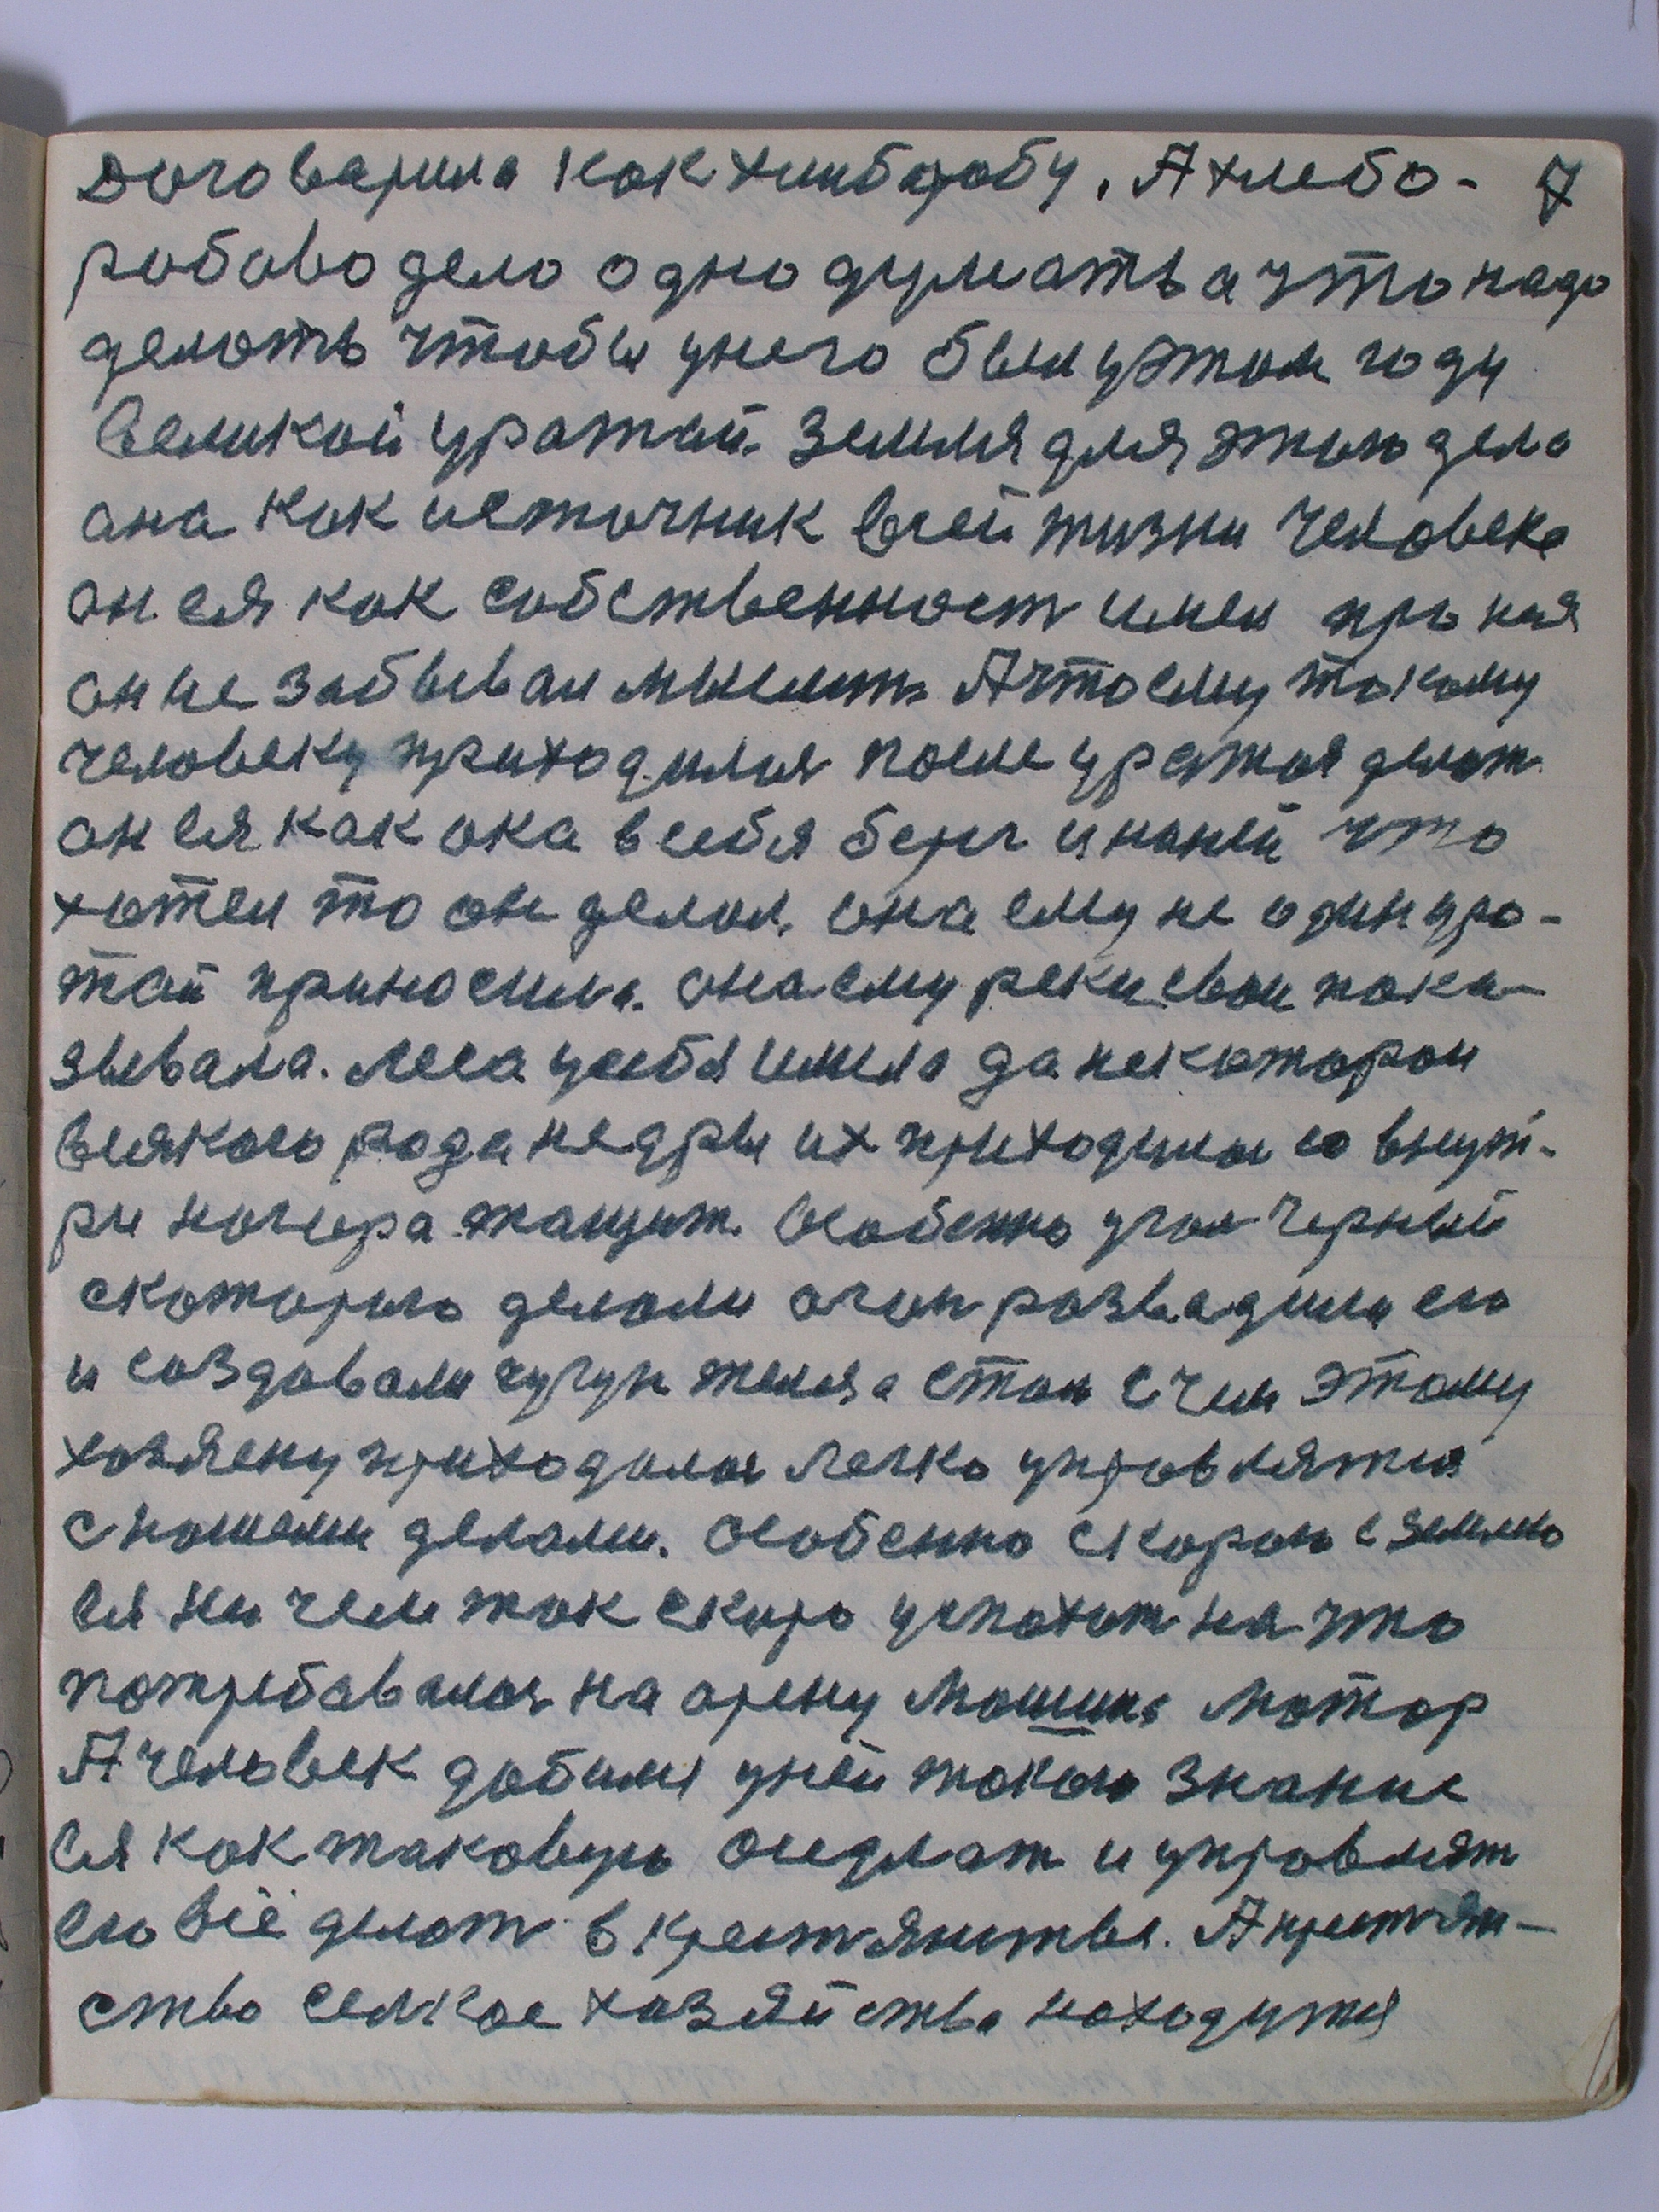 Договарила как хлибаробу. А хлебо- 7
робово дело одно думать а что надо
делоть чтобы унего был уэтом году
великой уражай. Земля для этого дела
она как источник всей жизни человека
он ея как собственност имел про ная
он не забывал мыслит. А что ему такому
человеку приходилося после уражая делат
он ея как ока всебя берег и наней что
хотел то он делал. она ему не один ура-
жай приносила. она ему реки свои пока-
зывала. леса усебя имела да некоторои
всякого рода недры их приходилос со внут-
ри тащит. Особенно угол черный
скоторого делали огон разводили его
и создавали чугун железа стал с чем этому
хозяену приходилос легко управлятся
с нашеми делами. особенно скорои с землею
ея ни чем так скоро успахат на что
потребавалос на арену машина мотор
А человек добился уней такого знание
ея как таковую и управлят
ею всё делат в крестянстве. А крестян-
ство селкое хазяйства находится